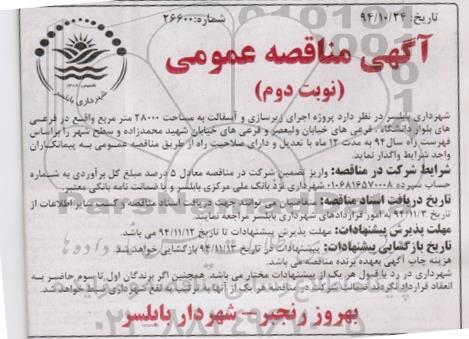 تاریخ: ۹۴/۱۰/۲۴
شماره: ۲۶۶۰۰
آگهی مناقصه عمومی
(نوبت دوم)
شهرداری بابلسر
شهرداری بابلسر در نظر دارد پروژه اجرای زیرسازی و آسفالت به مساحت ۲۸۰۰۰ متر مربع واقع در فرعی
های بلوار دانشگاه ، فرعی های خیابان ولیعصر و فرعی های خیابان شهید محمدزاده و سطح شهر را براساس
فهرست راه سال ۹۴ به مدت ۱۲ ماه با تعدیل و دارای صلاحیت راه از طریق مناقصه عمومی به پیمانکاران
واجد شرایط واگذار نماید.
شرایط شرکت در مناقصه: واریز تضمین شرکت در مناقصه معادل ۵ درصد مبلغ کل برآوردی به شماره
حساب سپرده ۰۱۰۶۸۱۶۵۷۰۰۰۸ شهرداری نزد بانک ملی مرکزی بابلسر و یا ضمانت نامه بانکی معتبر.
تاریخ دریافت اسناد مناقصه: متقاضیان می توانند جهت دریافت اسناد مناقصه و کسب سایر اطلاعات از
تاریخ ۹۴/۱۱/۳ به امور قراردادهای شهرداری بابلسر مراجعه نمایند.
مهلت پذیرش پیشنهادات: مهلت پذیرش پیشنهادات تا تاریخ ۹۴/۱۱/۱۲ می باشد.
تاریخ بازگشایی پیشنهادات: پیشنهادات در تاریخ ۹۴/۱۱/۱۳ بازگشایی خواهد شد.
هزینه چاپ آگهی بعهده برنده مناقصه می باشد.
شهرداری در رد یا قبول هر یک از پیشنهادات مختار می باشد. همچنین اگر برندگان اول تا سوم حاضر به
انعقاد قرارداد نگردند ضمانت شرکت در مناقصه هر یک از آنها به ترتیب به نفع شهرداری ضبط خواهد شد.
بهروز رنجبر – شهردار بابلسر